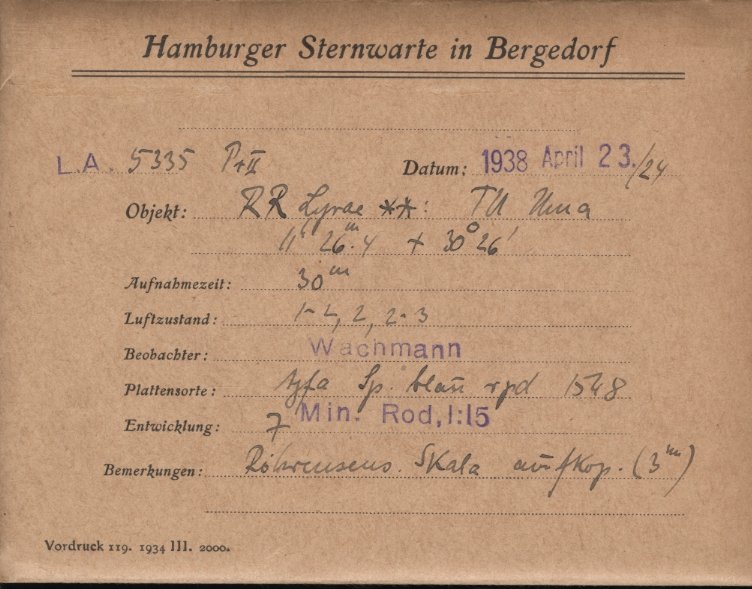 Hamburger Sternwarte in Bergedorf
L.A. 5335 Pr II Datum: 1938 April 23./24
Objekt: RR Lyrae **: TU Uma
11h 26m.4 + 30° 26'
Aufnahmezeit: 30m
Luftzustand: 1-2, 2, 2-3
Beobachter: Wachmann
Plattensorte: Agfa Sp. blau rpd 1548
Entwicklung: 7 Min. Rod, 1:15
Bemerkungen: Röhrensens. Skala aufkop. (3m)
Vordruck 119. 1934 III. 2000.